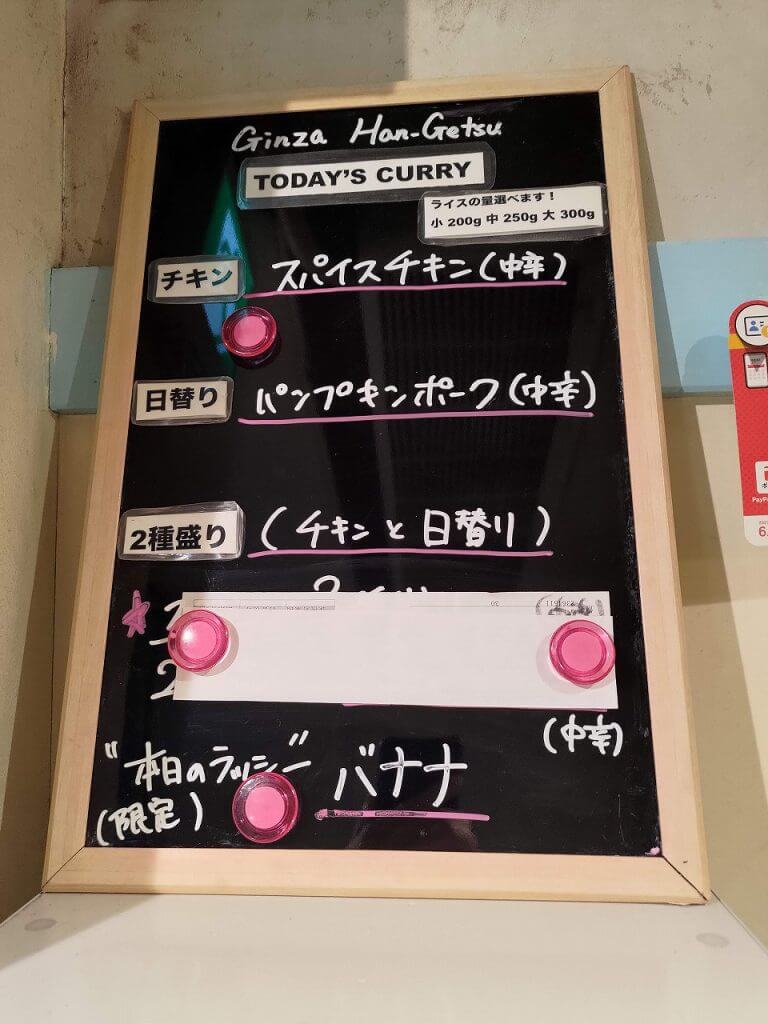 Ginza Han-Getsu
TODAY'S CURRY
ライスの量選べます！
小 200g 中 250g 大 300g
チキン スパイスチキン(中辛)
日替り パンプキンポーク(中辛)
2種盛り (チキンと日替り)
30
2
(中辛)
"本日のラッシー" バナナ
(限定)
PayP
6.